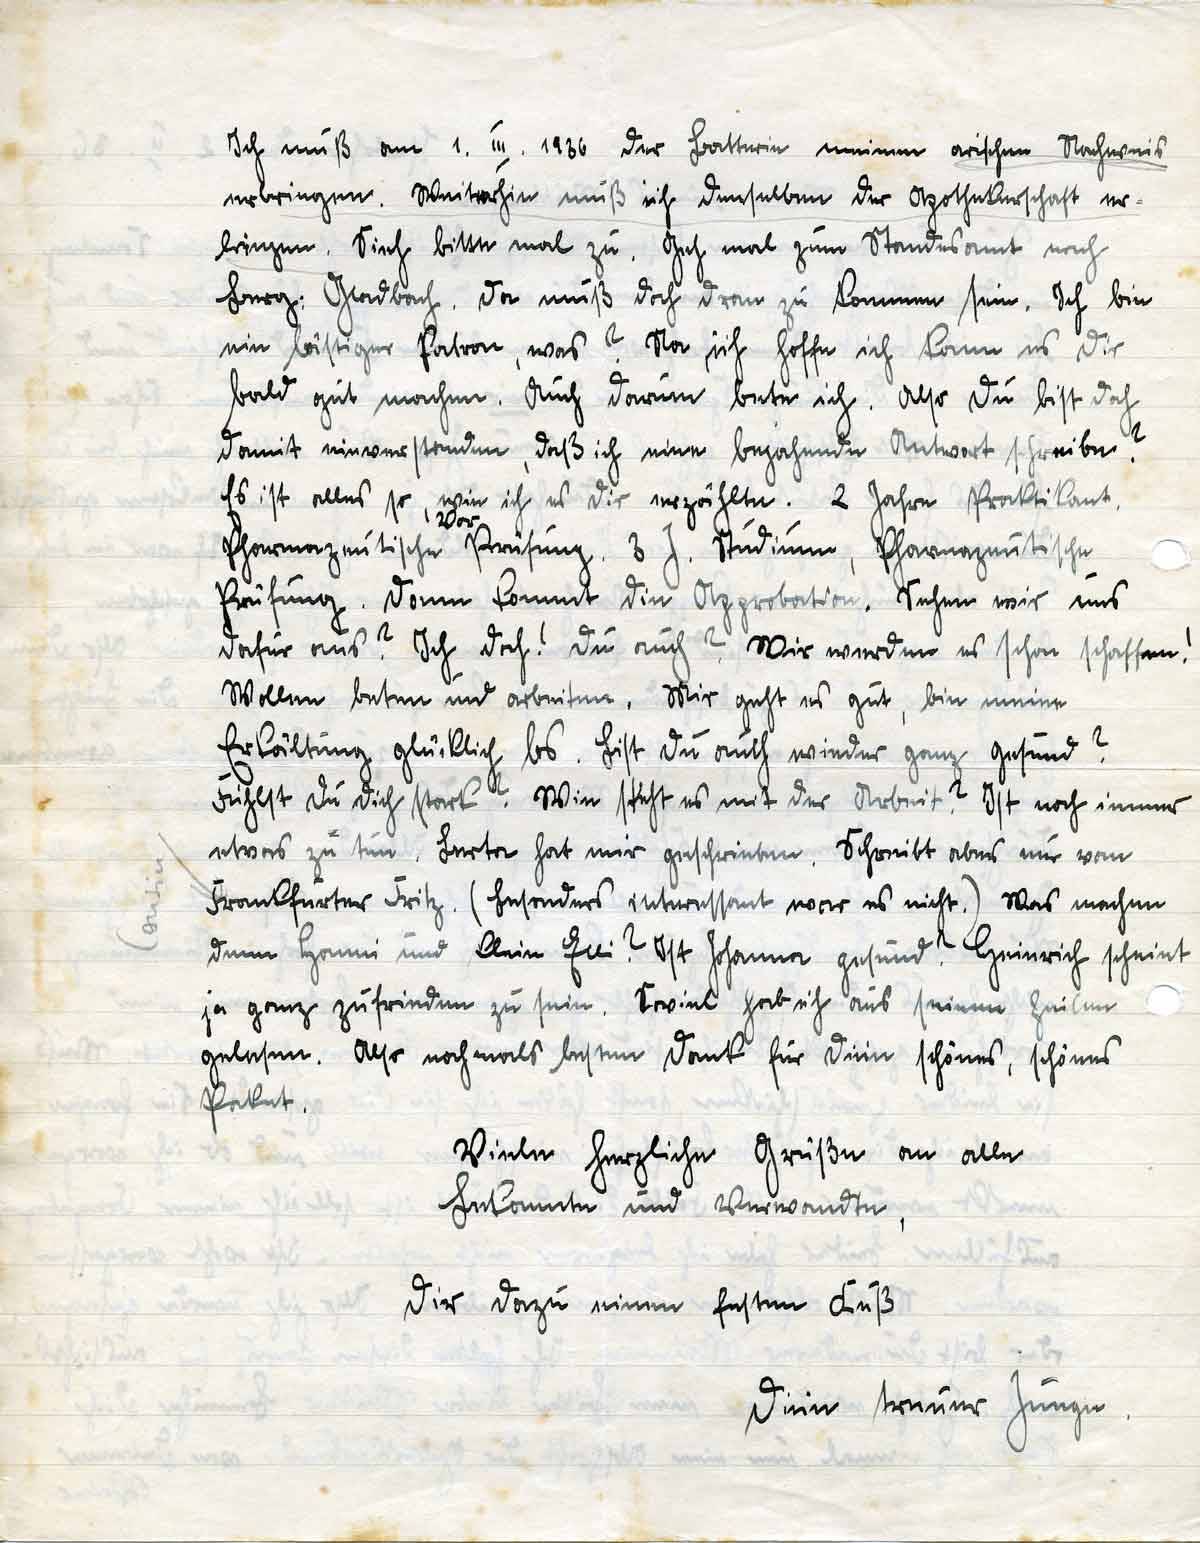 Ich muß am 1. III. 1936 der Batterie meinen arischen Nachweis
erbringen. Weiterhin muß ich denselben der Apothekerschaft er-
bringen. Sieh bitte mal zu. Geh mal zum Standesamt nach
Berg: Gladbach. Da muß doch dran zu kommen sein. Ich bin
ein lästiger Patron, was? Na ich hoffe ich kann es Dir
bald gut machen. Auch darum bete ich. Also Du bist doch
damit einverstanden, daß ich eine bejahende Antwort schreibe?
Es ist alles so, wie ich es Dir erzählte. 2 Jahre Praktikant.
Vor
Pharmazeutische Prüfung. 3 J. Studium, Pharmazeutische
Prüfung. Dann kommt die Approbation. Sehen wir uns
dafür aus? Ich doch! Du auch? Wir werden es schon schaffen!
Wollen beten und arbeiten. Mir geht es gut, bin meine
Erkältung glücklich los. Bist Du auch wieder ganz gesund?
Fühlst Du Dich stark? Wie steht es mit der Arbeit? Ist noch immer
etwas zu tun. Berta hat mir geschrieben. Schreibt aber nur vom
Frankfurter Fritz. (Besonders interessant war es nicht.) Was machen
denn Hanni und klein Elli? Ist Johanna gesund? Heinrich scheint
ja ganz zufrieden zu sein. Soviel hab ich aus seinen Zeilen
gelesen. Also nochmals besten Dank für Dein schönes, schönes
Paket.
Viele herzliche Grüße an alle
Bekannte und Verwandte,
Dir dazu einen festen Kuß
Dein treuer Junge.